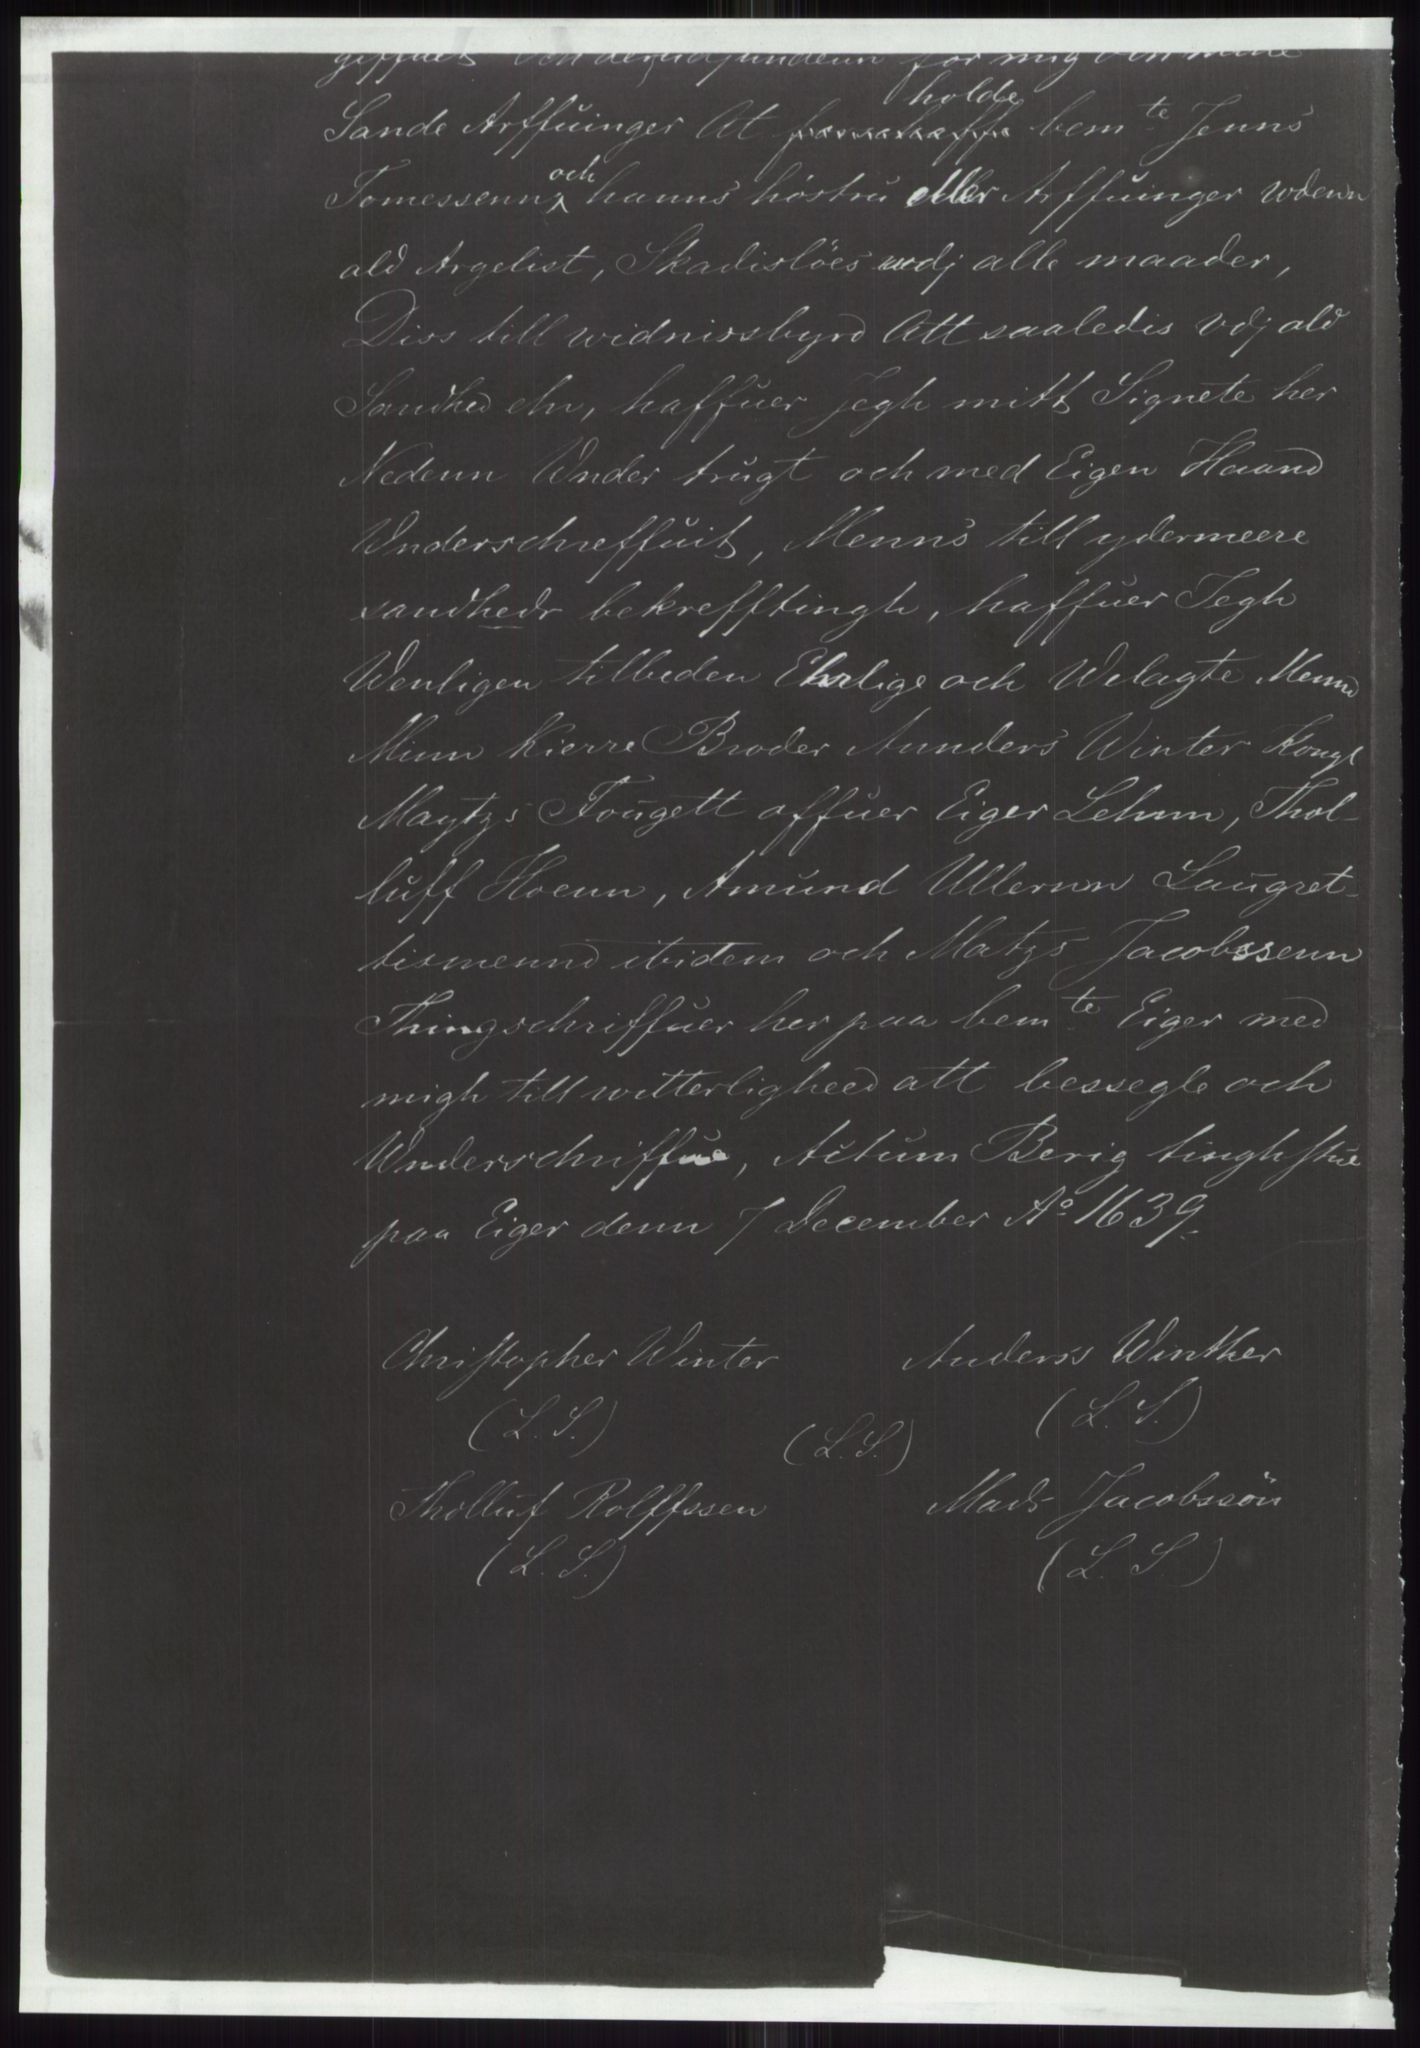 for mig och mine
holde
Sande Arffuinger At bem te Jenns
och
Tomessenn, hanns höstru eller Arffuinger wdenn
ald Argelist, Skadislöes udj alle maader,
Diss till widnissbyrd Att saaledis vdj ald
Sandhed ehr, haffuer jegh mitt Signete her
Nedenn Wnder trügt och med Eigen Haand
Wnderschreffuit, Menns till ydermeere
sandheds bekrefftingh, haffuer Jegh
Wenligen tilbeden Ehrlige och Welagte Mennd
Minn Kierre Broder Annders Winter Kongl
Maytzs Fougett offuer Eiger Lehnn, Thol-
luff Hoenn, Amund Ullernn Laugret-
tismennd ibidem och Matzs Jacobssenn
Thingschriffuer her paa bem te Eiger med
migh till witterligheed att bessegle och
Wnderschriffue, Actum Berig tingh stue
paa Eiger denn 7 December Aº 1639.
Christopher Winter Anderss Winther
(L. S.) (L. S.) (L. S.)
Tholluf Rolffssen Mads Jacobssön
(L. S.) (L. S.)